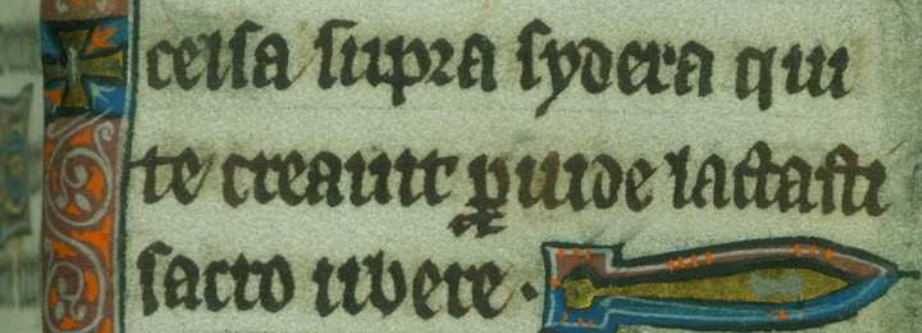 celsa supra sydera qui
te creauit ꝓuide lactasti
sacro ubere ·